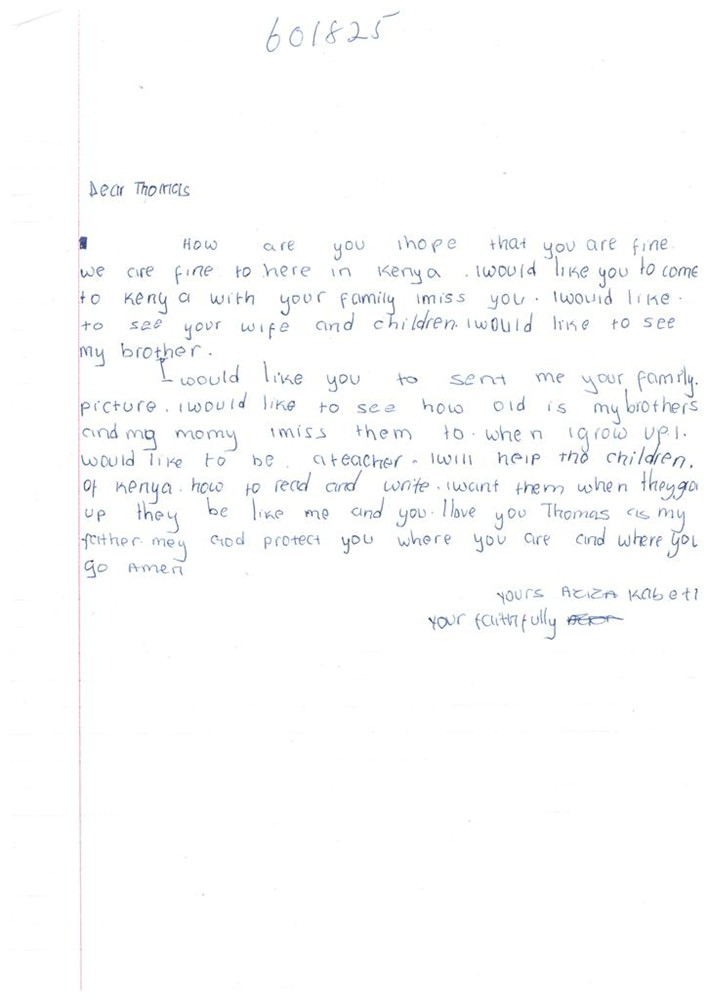 601825
Dear Thomas
How are you ihope that you are fine.
we are fine to here in Kenya . iwould like you to come
to Kenya with your family imiss you. Iwould like.
to see your wife and children. iwould like to see
my brother.
I would like you to sent me your family.
picture. iwould like to see how old is my brothers
and my momy imiss them to. when igrow up I.
would like to be. ateacher. Iwill help the children.
Of Kenya. how to read and write. iwant them when they go
up they be like me and you. Ilove you Thomas as my
father. mey God protect you where you are and where you
go Amen
yours AZIZA Kabeti
your faithfully